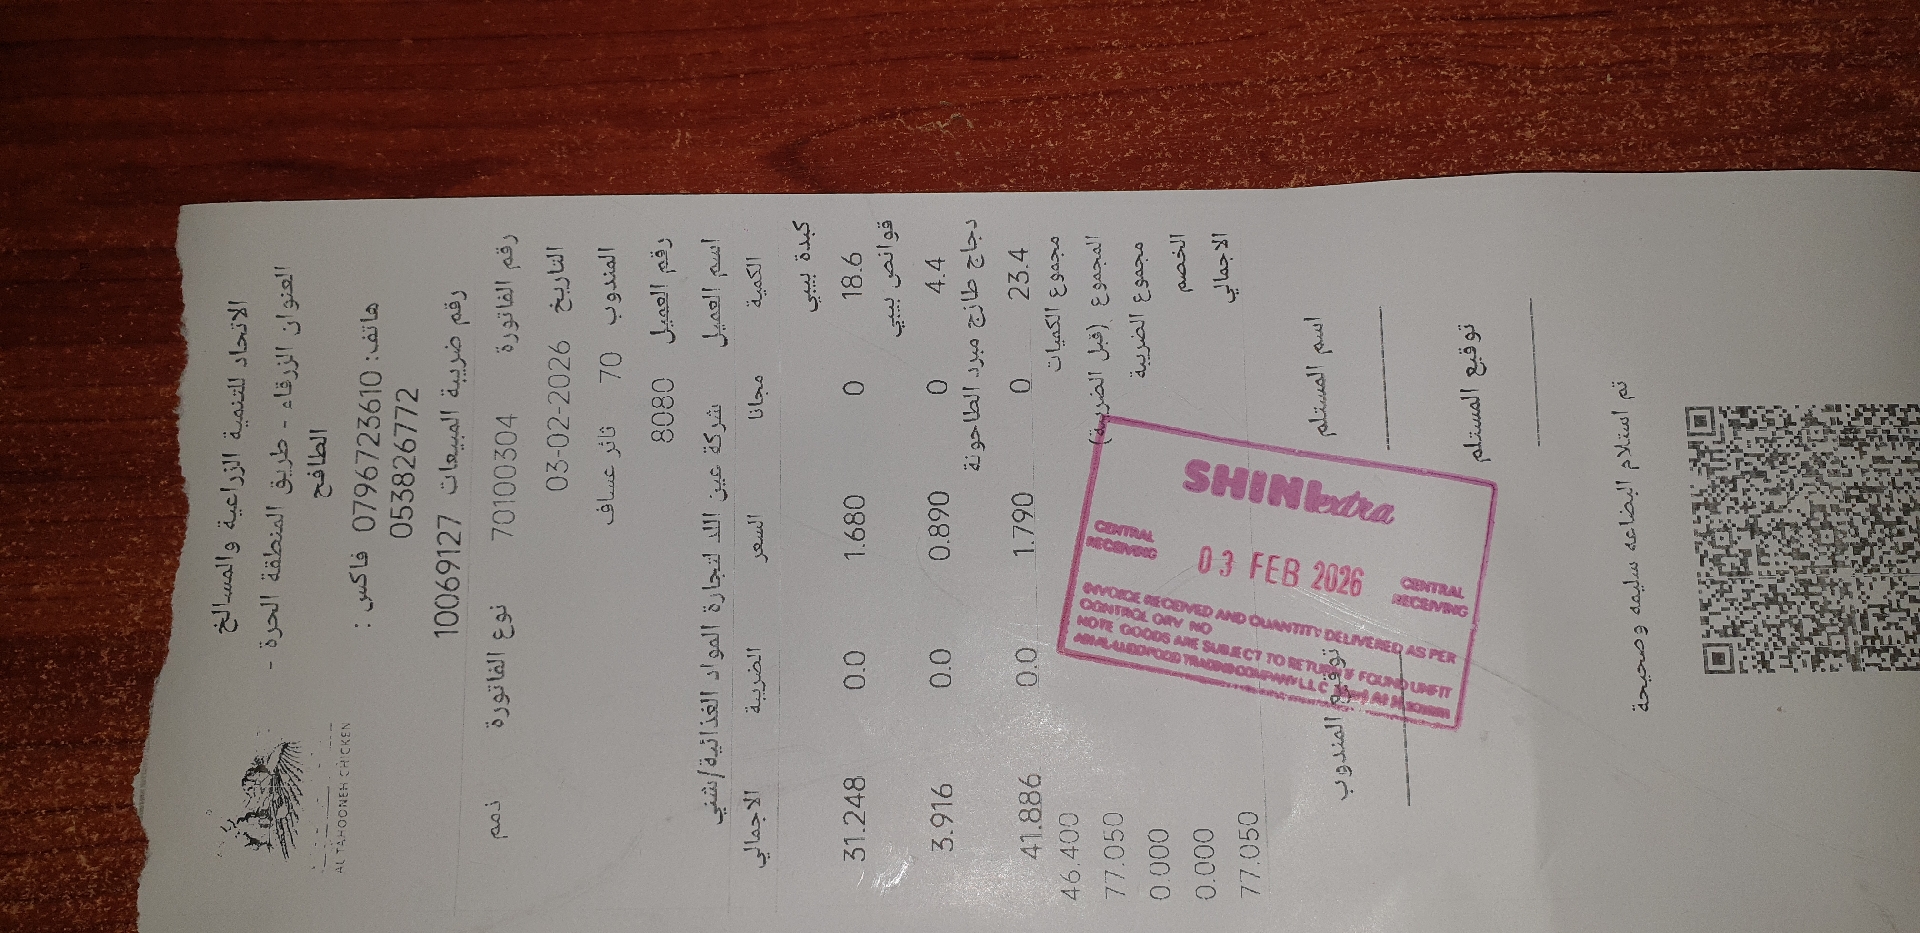 الاتحاد للتنمية الزراعية والمسالخ
العنوان الزرقاء - طريق المنطقة الحرة -
الطافح
هاتف: 0796723610 فاكس :
053826772
رقم ضريبة المبيعات 10069127
AL TAHOONEH CHICKEN
رقم الفاتورة 70100304 نوع الفاتورة ذمم
التاريخ 03-02-2026
المندوب 70 ثائر عساف
رقم العميل 8080
اسم العميل شركة عين اللد لتجارة المواد الغذائية/شني
الكمية مجانا السعر الضريبة الاجمالي
كبدة بيبي
18.6 0 1.680 0.0 31.248
قوانص بيبي
4.4 0 0.890 0.0 3.916
دجاج طازج مبرد الطاحونة
23.4 0 1.790 0.0 41.886
مجموع الكميات 46.400
المجموع (قبل الضريبة) 77.050
مجموع الضريبة 0.000
الخصم 0.000
الاجمالي 77.050
SHINI extra
CENTRAL RECEIVING
03 FEB 2026
CENTRAL RECEIVING
INVOICE RECEIVED AND QUANTITY DELIVERED AS PER
CONTROL GRV NO
NOTE GOODS ARE SUBJECT TO RETURN IF FOUND UNFIT
اسم المستلم توقيع المندوب
توقيع المستلم
تم استلام البضاعه سليمه وصحيحة